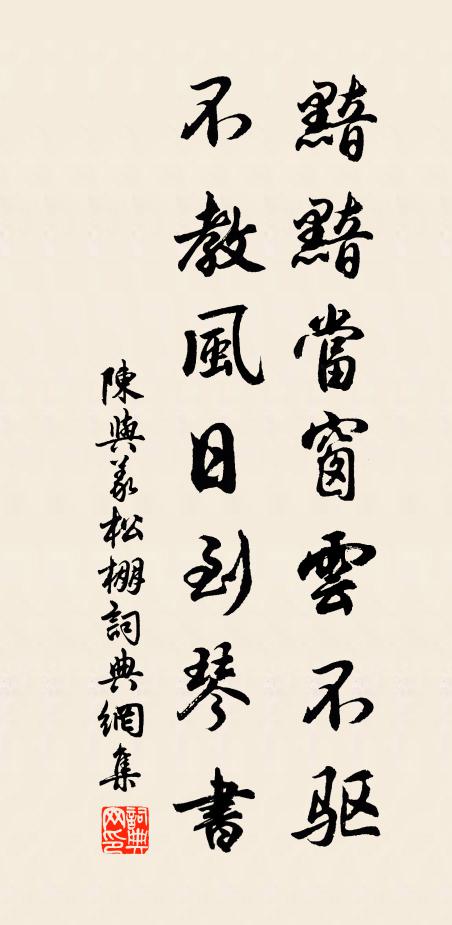 黯黯當窗雲不驱
不教風日到琴書
陳與義松棚詞典網集
詞典網印